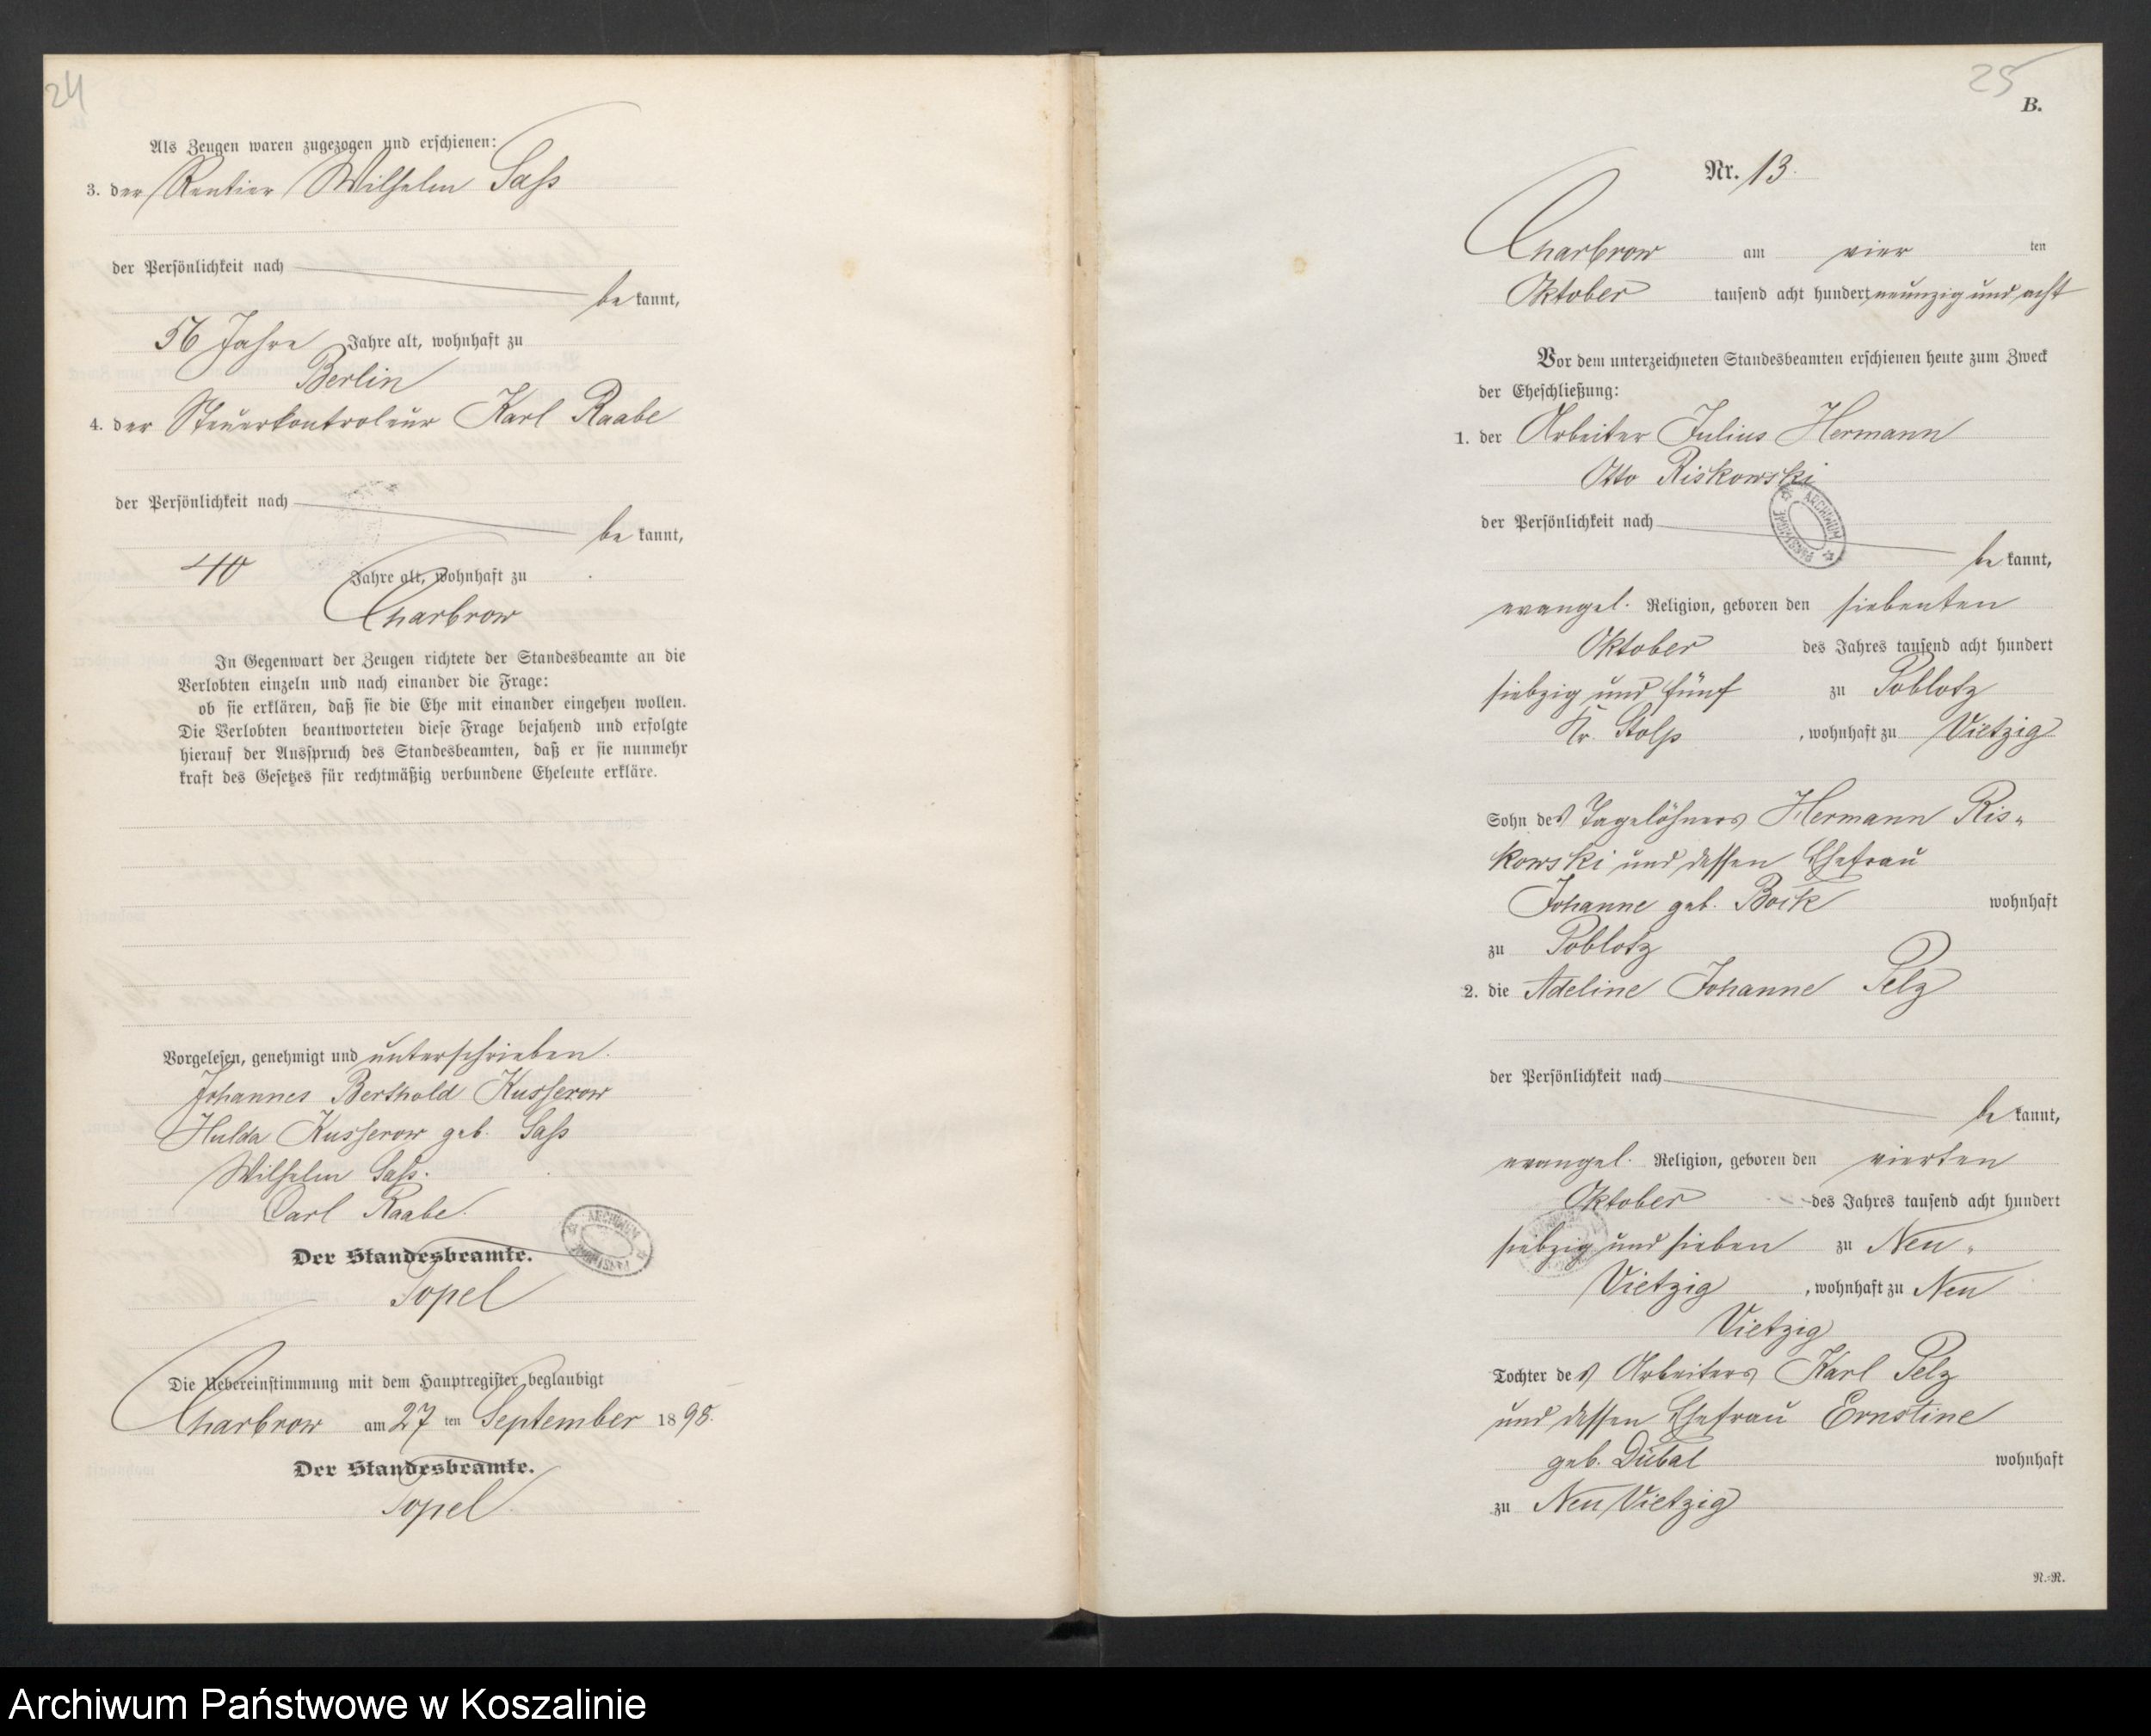 24
Als Zeugen waren zugezogen und erschienen:
3. der Rentier Wilhelm Saß
der Persönlichkeit nach
be kannt,
56 Jahre Jahre alt, wohnhaft zu
Berlin
4. der Steuerkontroleur Karl Raabe
der Persönlichkeit nach
be kannt,
40 Jahre alt, wohnhaft zu
Charbrow
In Gegenwart der Zeugen richtete der Standesbeamte an die
Verlobten einzeln und nach einander die Frage:
ob sie erklären, daß sie die Ehe mit einander eingehen wollen.
Die Verlobten beantworteten diese Frage bejahend und erfolgte
hierauf der Ausspruch des Standesbeamten, daß er sie nunmehr
kraft des Gesetzes für rechtmäßig verbundene Eheleute erkläre.
Vorgelesen, genehmigt und unterschrieben.
Johannes Berthold Kusserow
Hulda Kusserow geb. Saß
Wilhelm Saß.
Carl Raabe.
Der Standesbeamte.
Topel
Die Uebereinstimmung mit dem Hauptregister beglaubigt
Charbrow am 27 ten September 1898.
Der Standesbeamte.
Topel
ARCHIWUM PAŃSTWOWE
25
B.
Nr. 13.
Charbrow am vier ten
Oktober tausend acht hundert neunzig und acht
Vor dem unterzeichneten Standesbeamten erschienen heute zum Zweck
der Eheschließung:
1. der Arbeiter Julius Hermann
Otto Riskowski
ARCHIWUM PAŃSTWOWE
der Persönlichkeit nach
be kannt,
evangel. Religion, geboren den siebenten
Oktober des Jahres tausend acht hundert
siebzig und fünf zu Poblotz
Kr. Stolp, wohnhaft zu Vietzig
Sohn des Tagelöhners Hermann Ris-
kowski und dessen Ehefrau
Johanne geb. Boik wohnhaft
zu Poblotz
2. die Adeline Johanne Pelz
der Persönlichkeit nach
be kannt,
evangel. Religion, geboren den vierten
Oktober des Jahres tausend acht hundert
siebzig und sieben zu Neu-
Vietzig, wohnhaft zu Neu
Vietzig
Tochter des Arbeiters Karl Pelz
und dessen Ehefrau Ernstine
geb. Dübal wohnhaft
zu Neu Vietzig
N.-R.
Archiwum Państwowe w Koszalinie